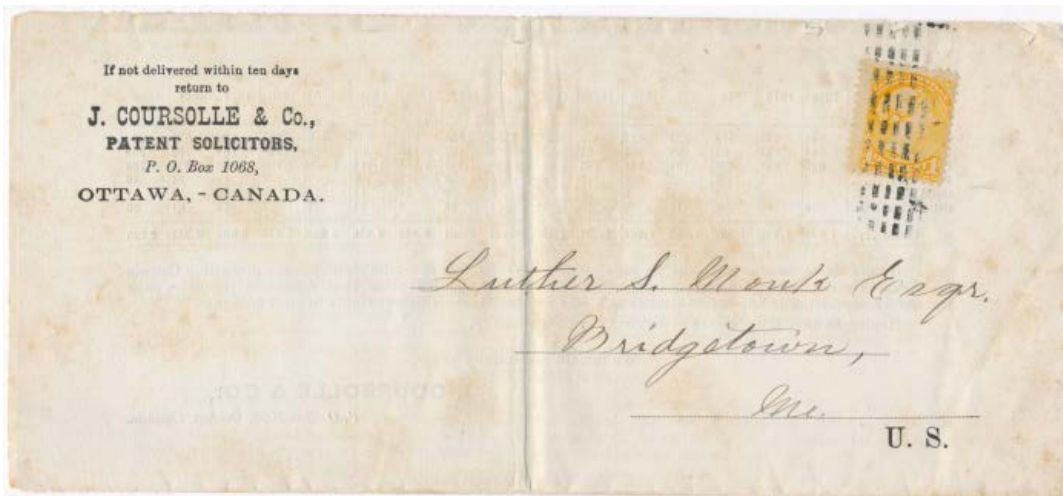 If not delivered within ten days
return to
J. COURSOLLE & Co.,
PATENT SOLICITORS,
P. O. Box 1068,
OTTAWA, - CANADA.
Luther S. Monk Esqr.
Bridgetown,
Me.
U. S.